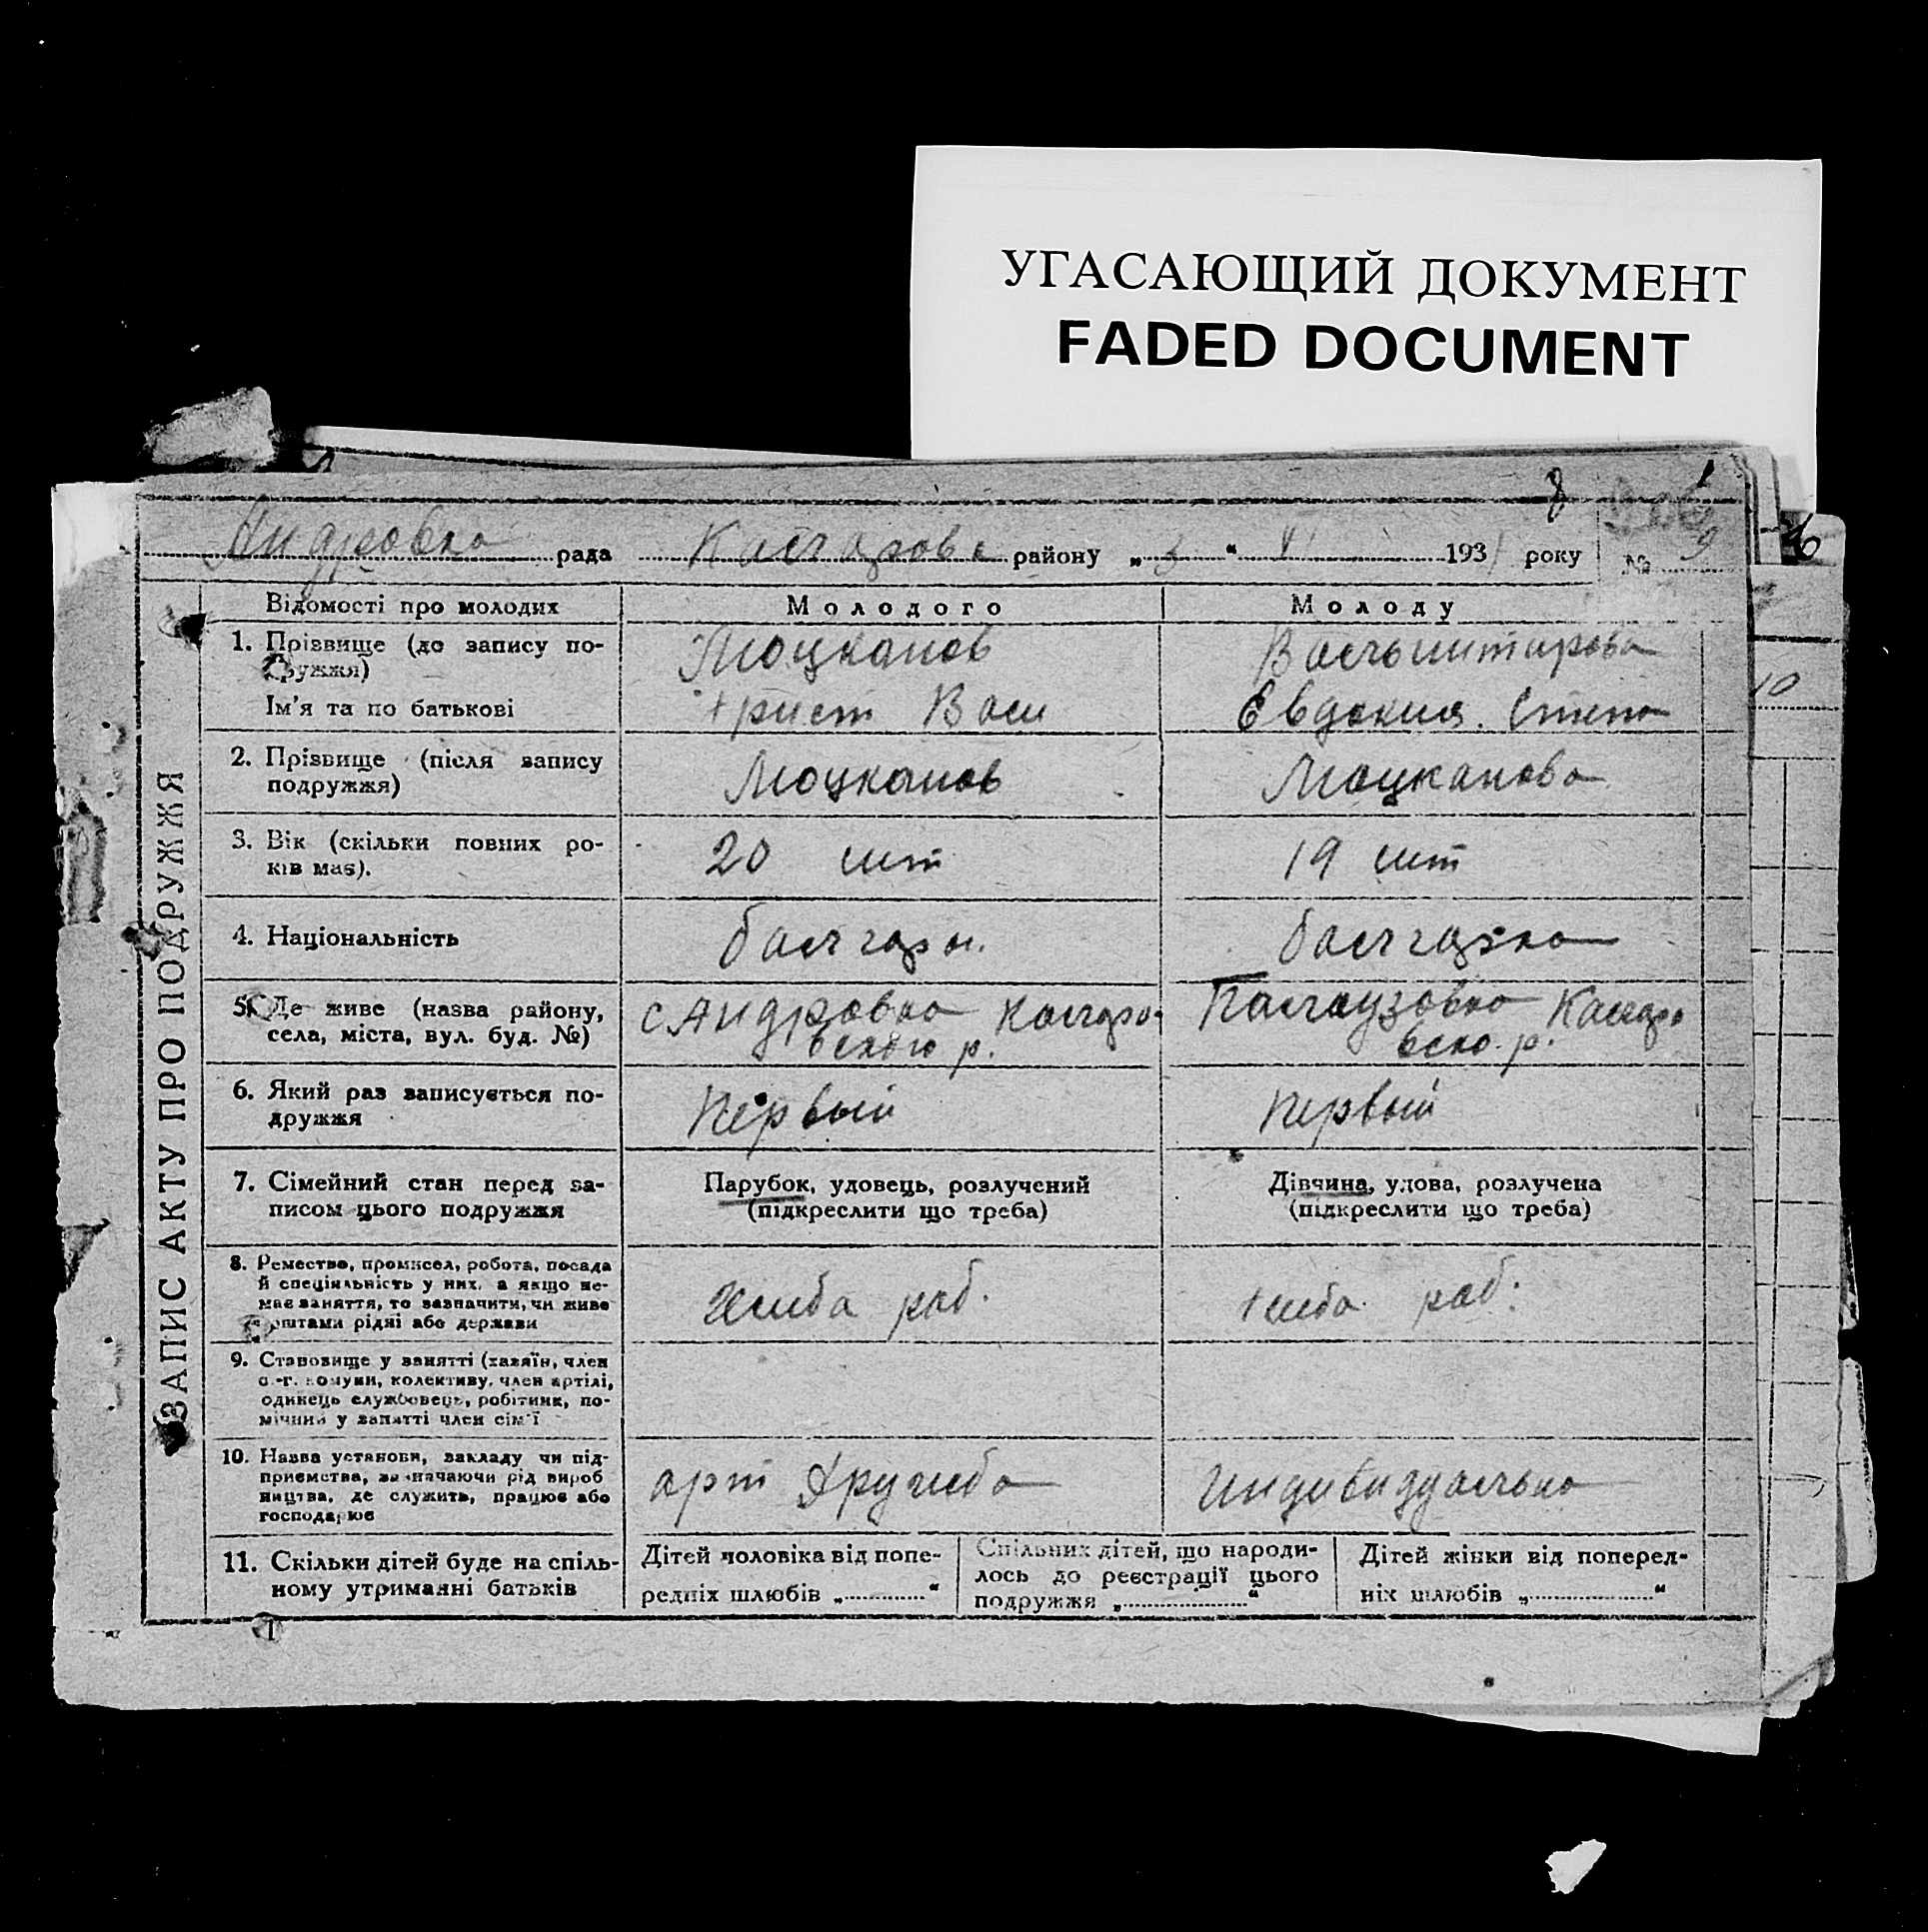 УГАСАЮЩИЙ ДОКУМЕНТ
FADED DOCUMENT
8 1
Андровка рада Коларовка району „3“ VI 1931 року № 9
ЗАПИС АКТУ ПРО ПОДРУЖЖЯ
Відомості про молодих Молодого Молоду
1. Прізвище (до запису по-
дружжя)
Моцканов
Імʼя та по батькові
Христ Васи Евдокия. Степа
2. Прізвище (після запису
подружжя)
Моцканов Моцканова
3. Вік (скільки повних ро-
ків має).
20 лет 19 лет
4. Національність
болгары. болгарка
5. Де живе (назва району,
села, міста, вул. буд. №)
с Андровка Коларо-
вского р.
Палаузовка Коларо
вско. р.
6. Який раз записується по-
дружжя
Первый Первый
7. Сімейний стан перед за-
писом цього подружжя
Парубок, удовець, розлучений
(підкреслити що треба)
Дівчина, удова, розлучена
(підкреслити що треба)
8. Ремество, промисел, робота, посада
й спеціяльність у них, а якщо не-
має заняття, то зазначити, чи живе
коштами рідні або держави
Хлеба раб. Хлеба раб.
9. Становище у занятті (хазяїн, член
с.-г. комуни, колективу, член артілі,
одинець службовець, робітник, по-
мічний у занятті член сімʼї
10. Назва установи, закладу чи під-
приємства, зазначаючи рід вироб
ництва, де служить, працює або
господарює
арт Дружба Индивидуально
11. Скільки дітей буде на спіль-
ному утриманні батьків
Дітей чоловіка від попе-
редніх шлюбів „ “
Спільних дітей, що народи-
лось до реєстрації цього
подружжя „ “
Дітей жінки від поперед-
ніх шлюбів „ “
10